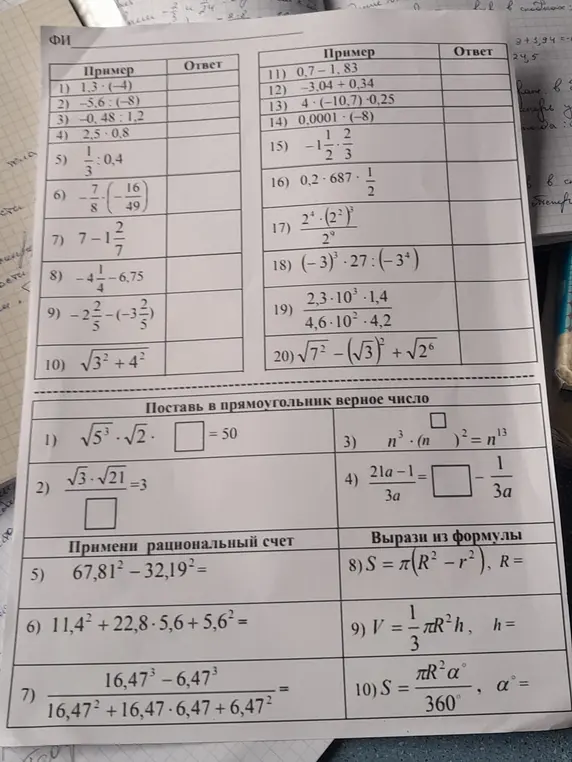 ФИ
Пример Ответ
1) 1,3 · (–4)
2) –5,6 : (–8)
3) –0, 48 : 1,2
4) 2,5 · 0,8
5) 1/3 : 0,4
6) –7/8 · (–16/49)
7) 7 – 1 2/7
8) –4 1/4 – 6,75
9) –2 2/5 – (–3 2/5)
10) √(3² + 4²)
Пример Ответ
11) 0,7 – 1, 83
12) –3,04 + 0,34
13) 4 · (–10,7) ·0,25
14) 0,0001 · (–8)
15) –1 1/2 · 2/3
16) 0,2 · 687 · 1/2
17) 2⁴ · (2²)³ / 2⁹
18) (–3)³ · 27 : (–3⁴)
19) 2,3 · 10³ · 1,4 / 4,6 · 10² · 4,2
20) √7² – (√3)² + √2⁶
Поставь в прямоугольник верное число
1) √5³ · √2 · □ = 50
3) n³ · (n^□)² = n¹³
2) √3 · √21 / □ =3
4) 21a – 1 / 3a = □ – 1/3a
Примени рациональный счет
Вырази из формулы
5) 67,81² – 32,19² =
8) S = π(R² – r²), R =
6) 11,4² + 22,8 · 5,6 + 5,6² =
9) V = 1/3 πR²h, h =
7) 16,47³ – 6,47³ / 16,47² + 16,47 · 6,47 + 6,47² =
10) S = πR²α° / 360°, α° =